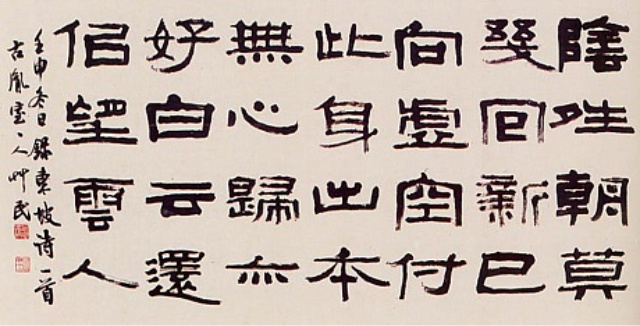 陰夝朝莫
幾回新已
向虛空付
此身出本
無心歸亦
好白云還
佀望雲人
壬申冬日錄東坡诗一首
古胤室主人艸民